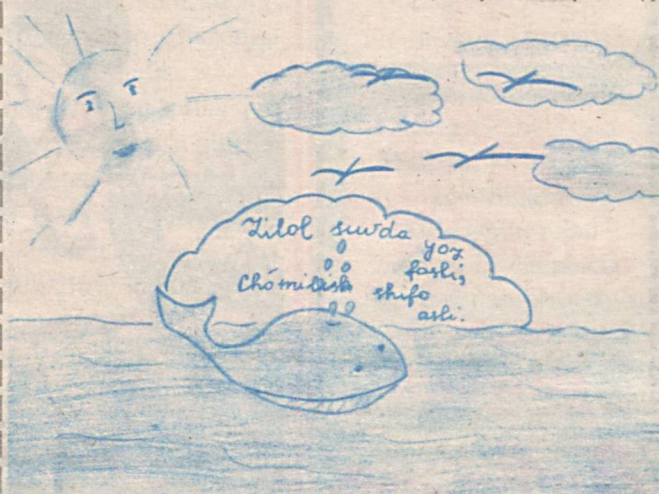 Zilol suvda yoz
fasli,
Chómilish shifo
asli.